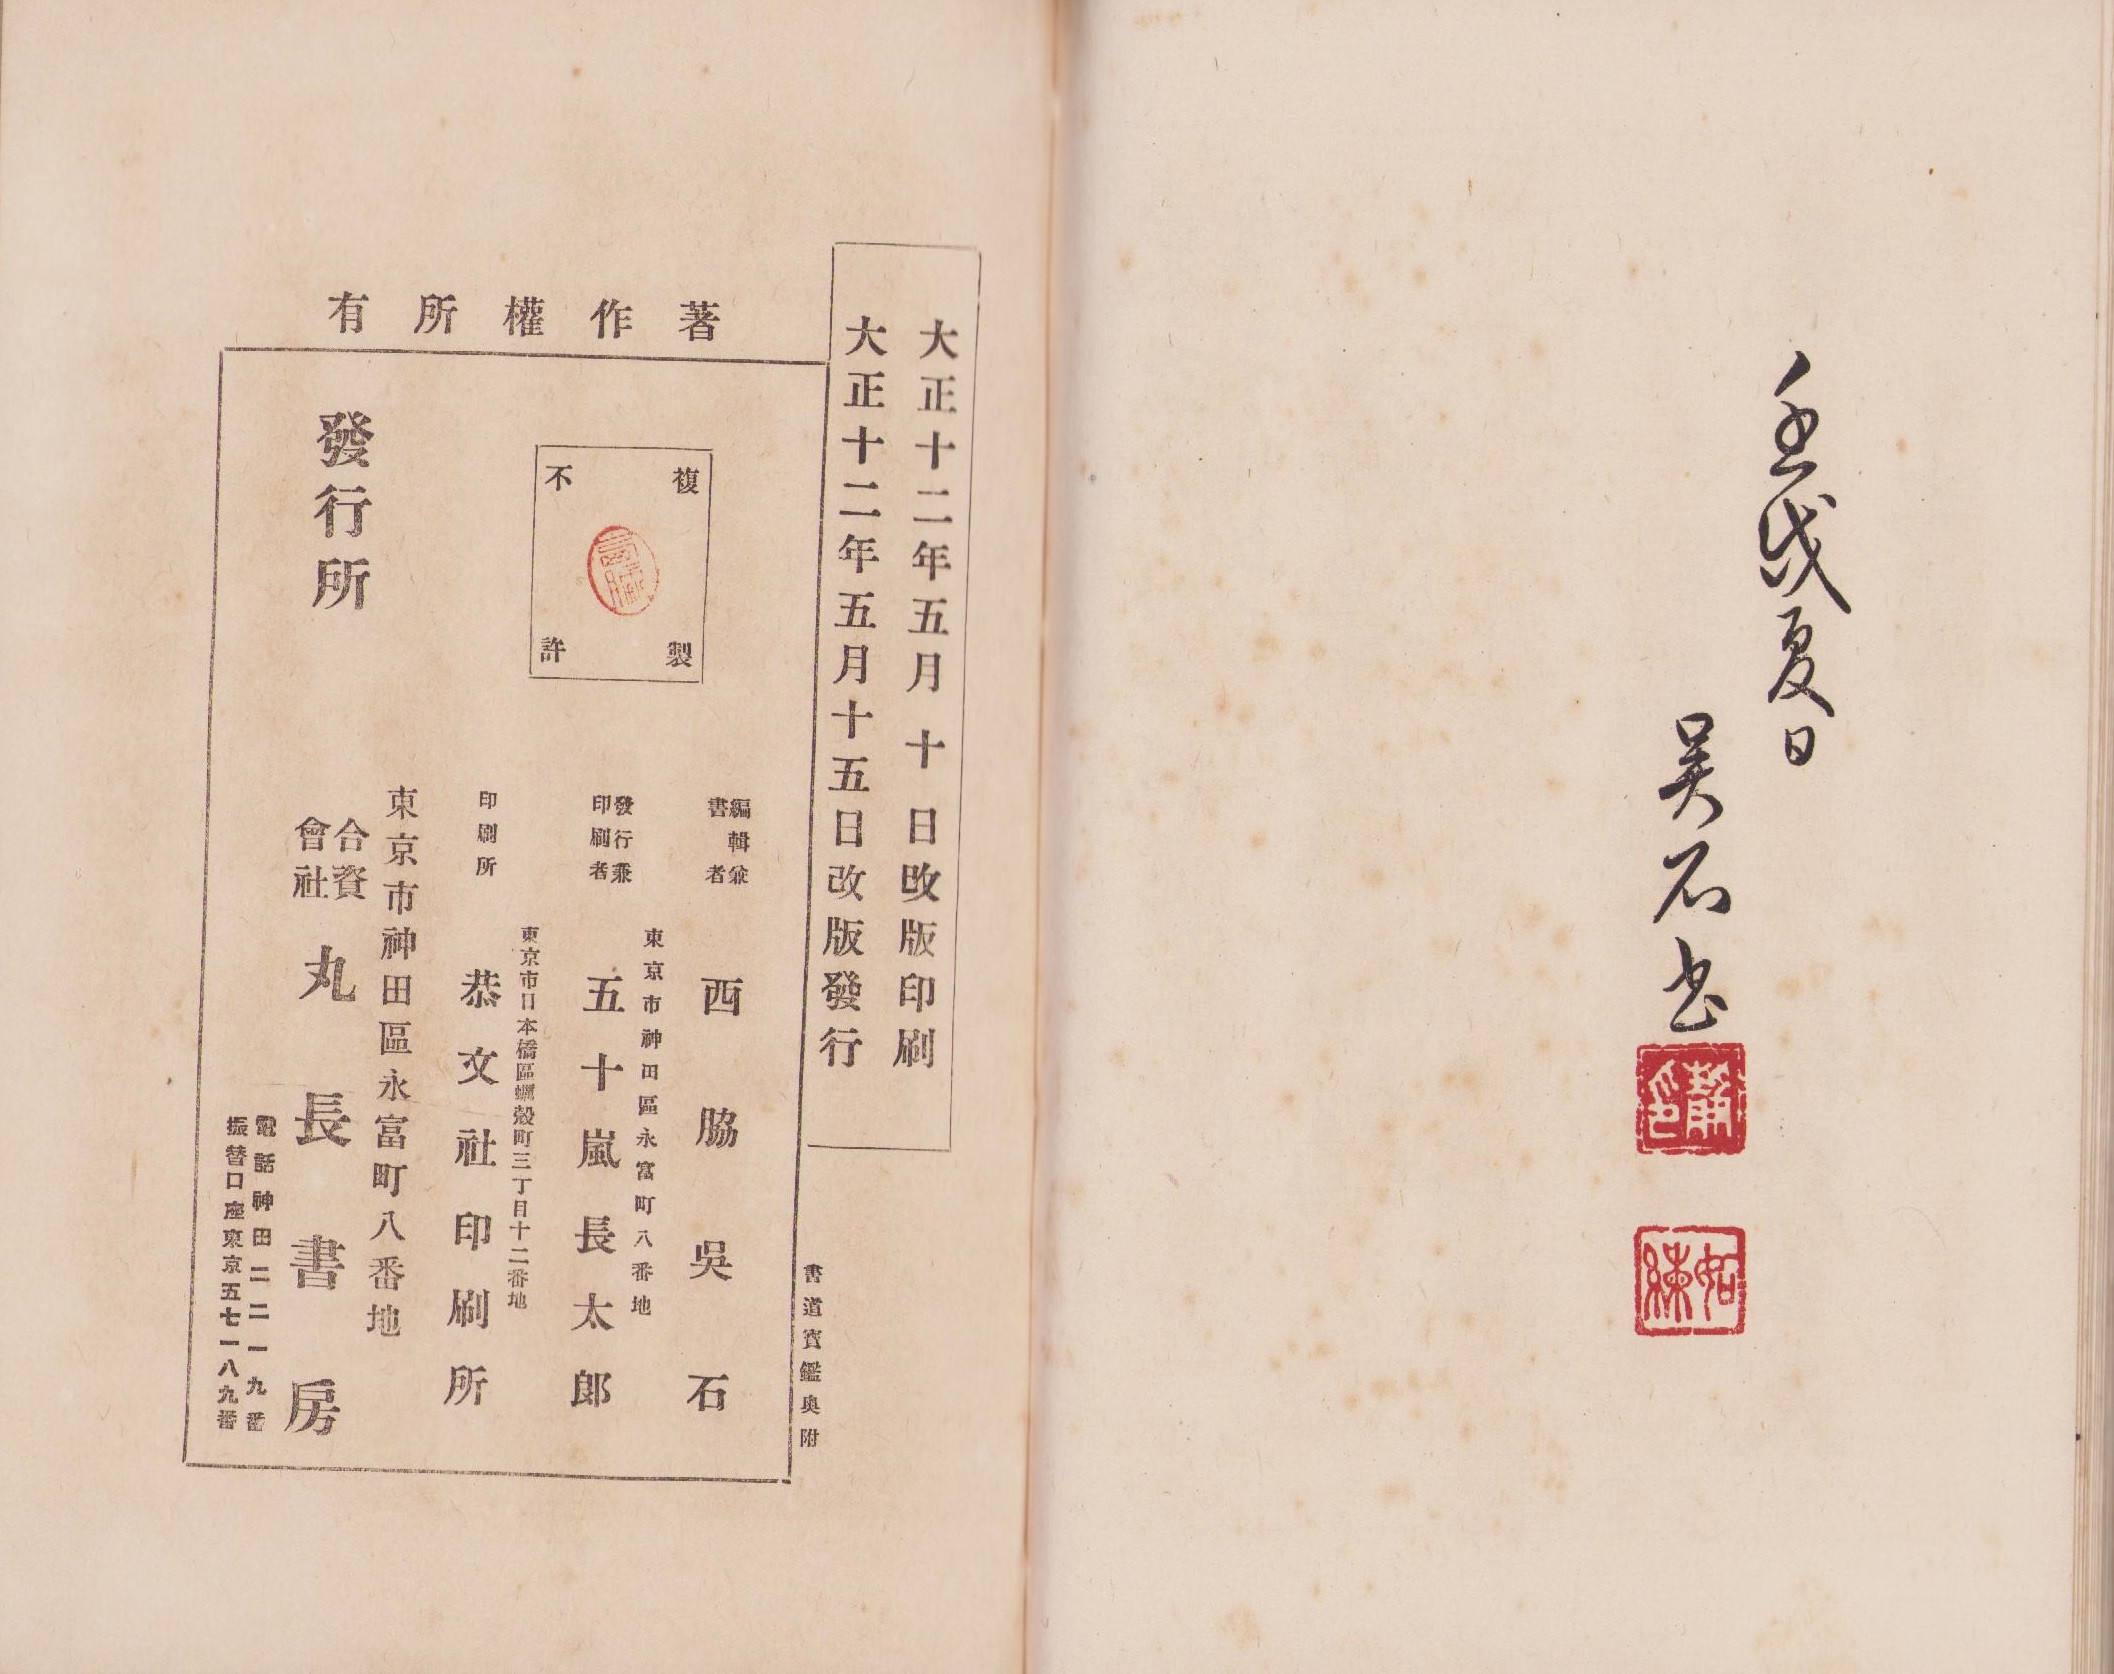 壬戌夏日
吳石書
大正十二年五月十日改版印刷
大正十二年五月十五日改版發行
書道寳鑑奥附
著作權所有
複製
不許
編輯兼
書者
西脇吳石
東京市神田區永富町八番地
發行兼
印刷者
五十嵐長太郎
東京市日本橋區蠣殼町三丁目十二番地
印刷所
恭文社印刷所
東京市神田區永富町八番地
發行所
合資
會社
丸長書房
電話神田二二一九番
振替口座東京五七一八九番